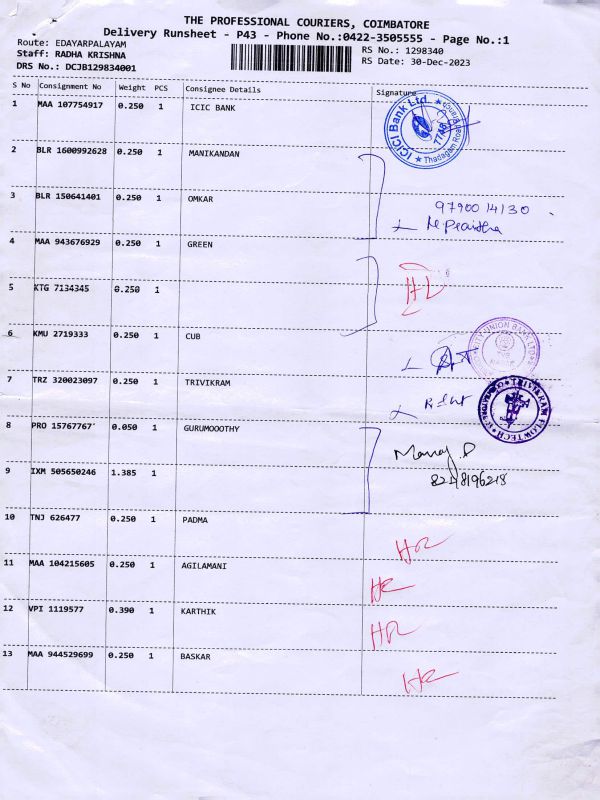 THE PROFESSIONAL COURIERS, COIMBATORE
Delivery Runsheet - P43 - Phone No.:0422-3505555 - Page No.:1
Route: EDAYARPALAYAM
RS No.: 1298340
Staff: RADHA KRISHNA
RS Date: 30-Dec-2023
DRS No.: DCJB129834001
S No Consignment No Weight PCS Consignee Details Signature
1 MAA 107754917 0.250 1 ICIC BANK
ICICI Bank Ltd. Thadagam Road
2 BLR 1600992628 0.250 1 MANIKANDAN
3 BLR 150641401 0.250 1 OMKAR
9790014130
4 MAA 943676929 0.250 1 GREEN
5 KTG 7134345 0.250 1
6 KMU 2719333 0.250 1 CUB
UNION BANK LTD
7 TRZ 320023097 0.250 1 TRIVIKRAM
TRIVIKRAM FLOWTECH
8 PRO 15767767 0.050 1 GURUMOOOTHY
Manoj.P
9 IXM 505650246 1.385 1
10 TNJ 626477 0.250 1 PADMA
11 MAA 104215605 0.250 1 AGILAMANI
12 VPI 1119577 0.390 1 KARTHIK
13 MAA 944529699 0.250 1 BASKAR